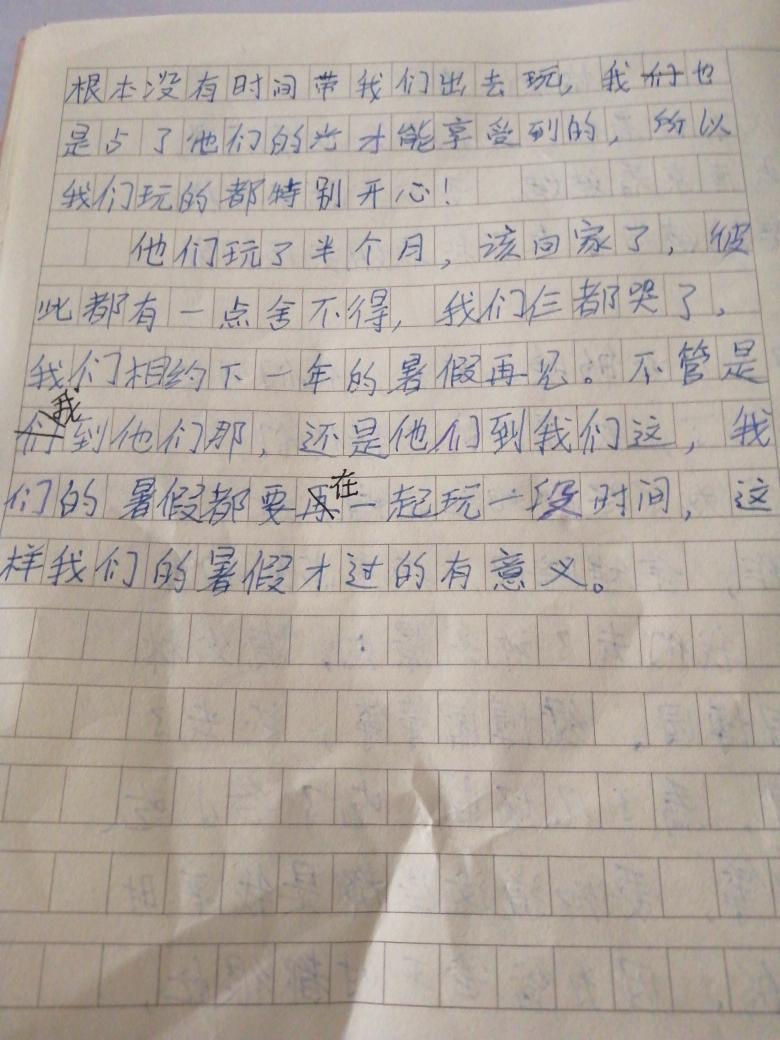 根本没有时间带我们出去玩，我们也
是占了他们的光才能享受到的，所以
我们玩的都特别开心！
他们玩了半个月，该回家了，彼
此都有一点舍不得，我们仨都哭了，
我们相约下一年的暑假再见。不管是
我到他们那，还是他们到我们这，我
们的暑假都要在一起玩一段时间，这
样我们的暑假才过的有意义。